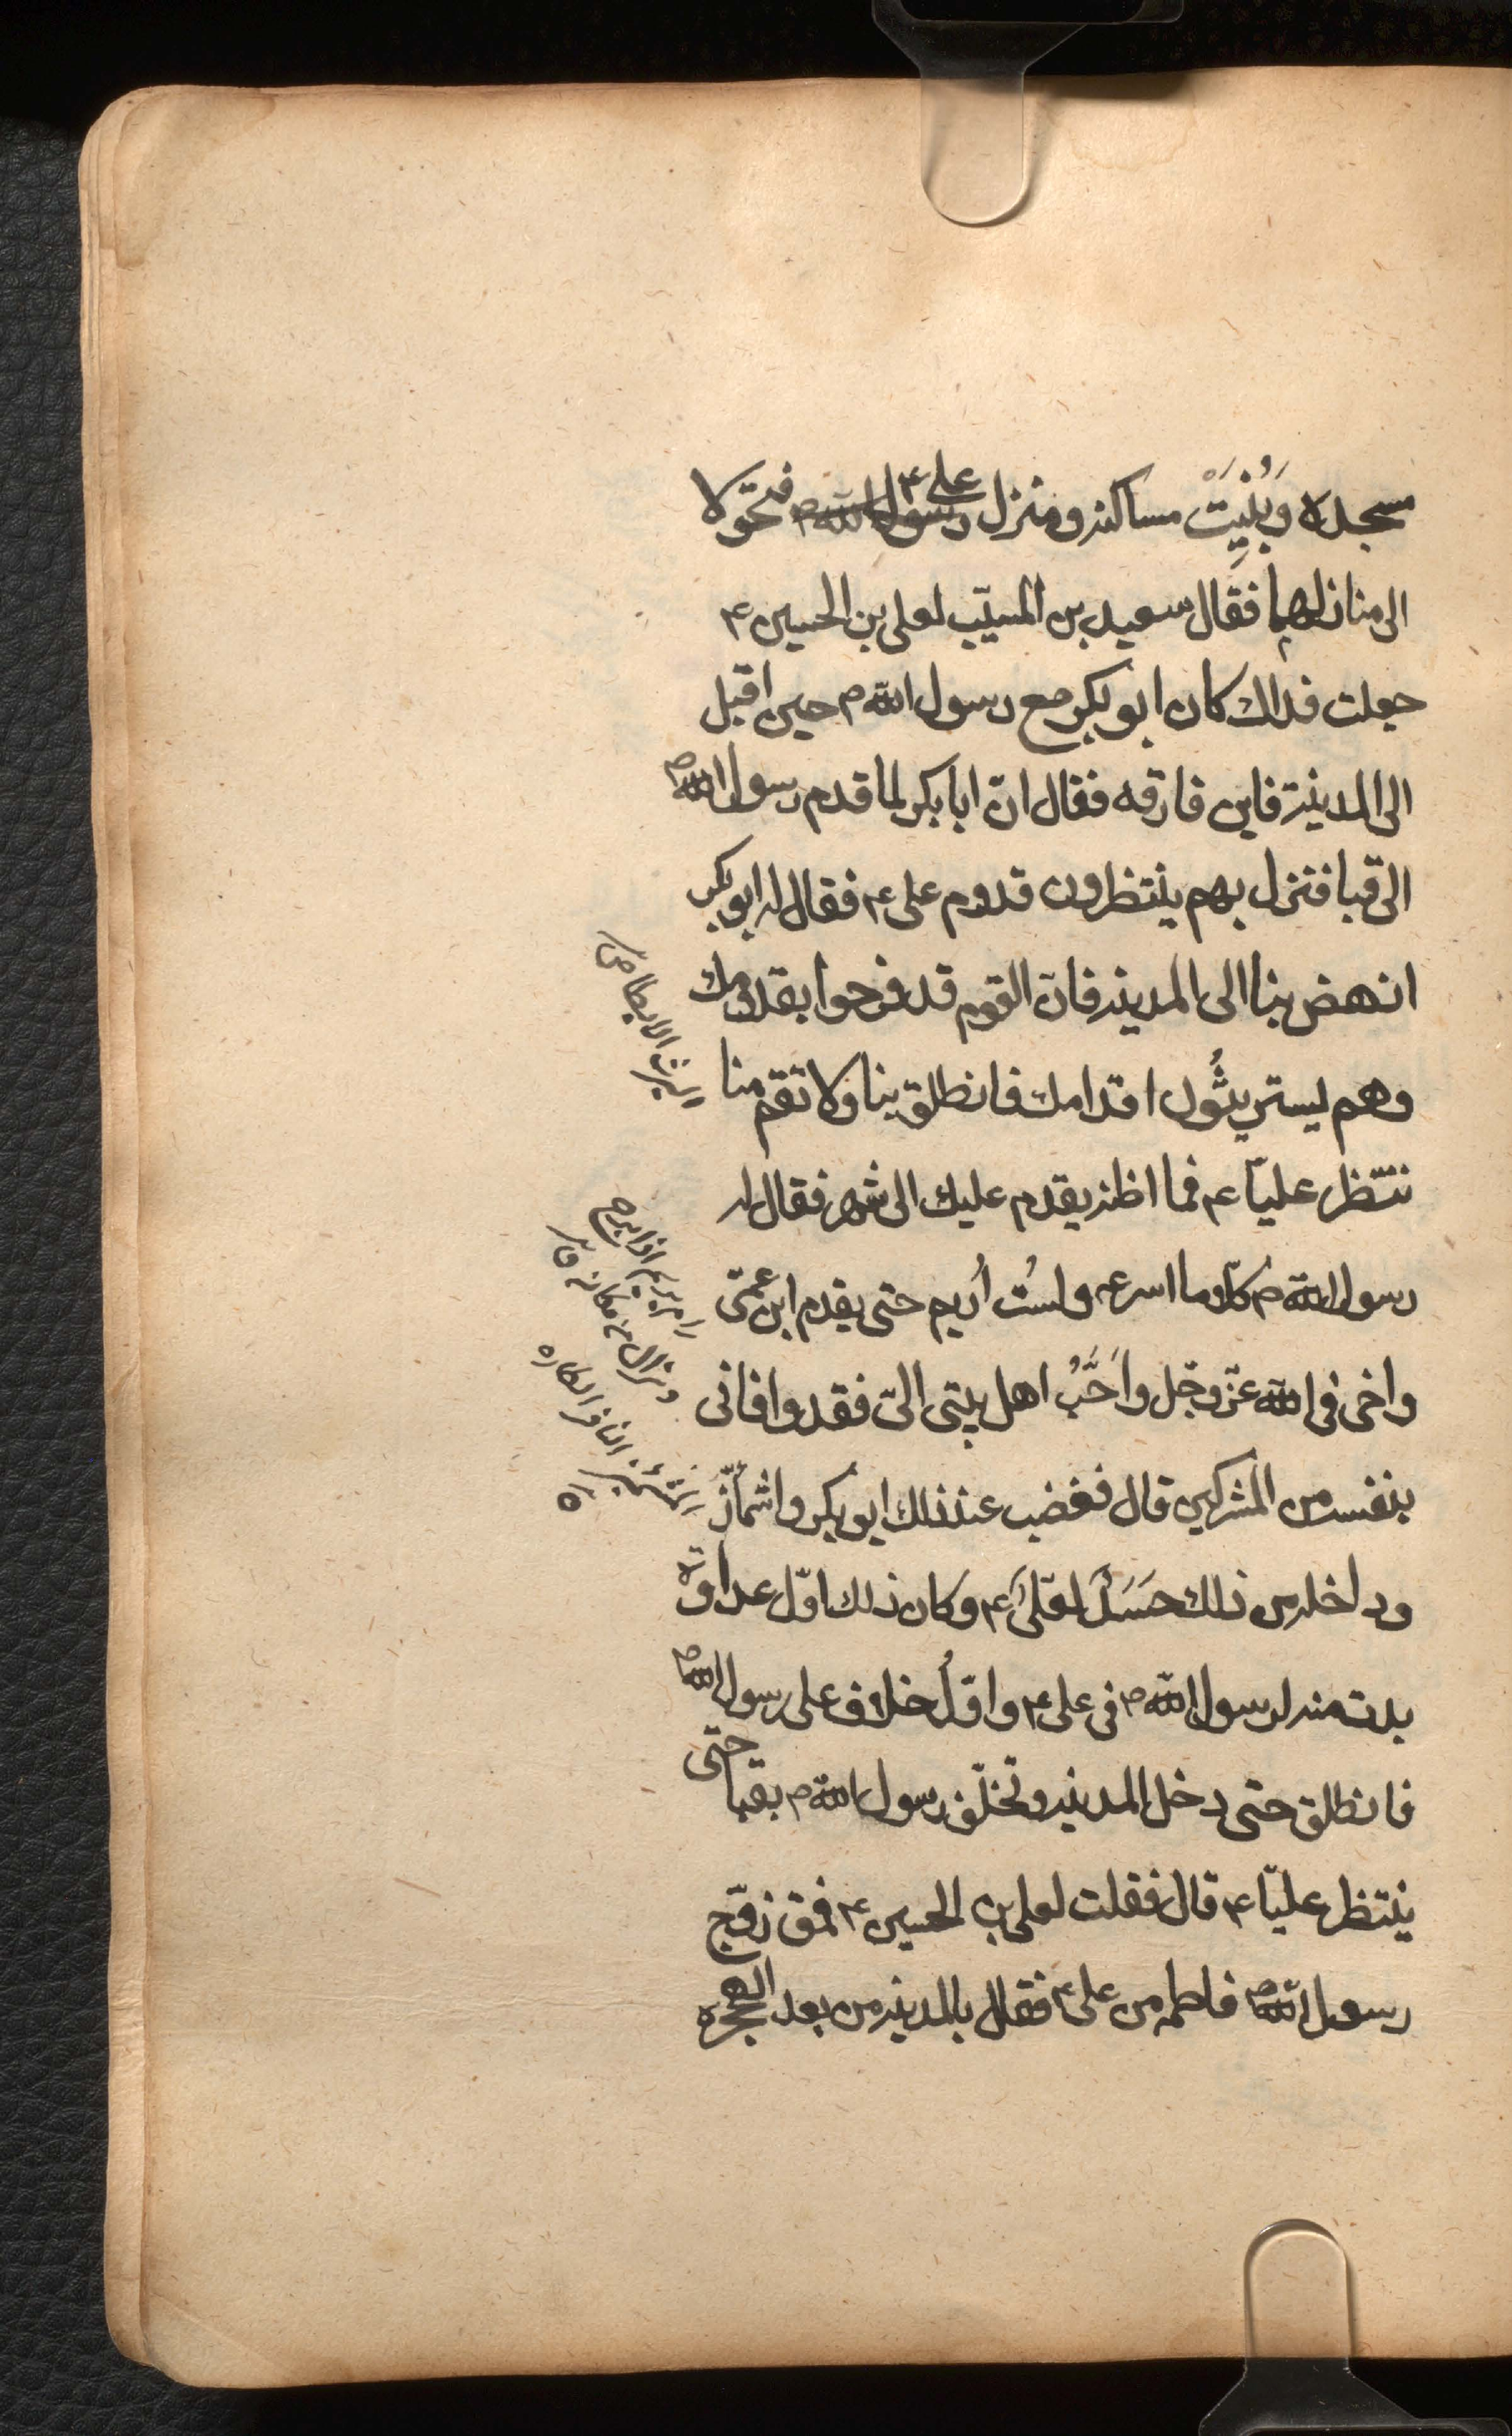 مسجده وَبُنِيَتْ مساكنه ومنزل علي ۴ رسول الله ص فتحولا
الى منازلهما فقال سعيد بن المسيّب لعلى بن الحسين ۴
جعلت فداك كان ابو بكر مع رسول الله ص حين اقبل
الى المدينة فاين فارقه فقال انّ ابا بكر لما قدم رسول الله ص
الى قبا فنزل بهم ينتظرون قدوم على ۴ فقال له ابو بكر
انهض بنا الى المدينه فانّ القوم قد فرحوا بقدومك
وهم يستريثُون اقدامك فانطلق بنا ولا تقم منا
ننتظر عليّا ۴ فما اظنه يقدم عليك الى شهر فقال له
رسول الله ص كلّا وما اسرعه ولستُ اُريم حتى يقدم ابن عمّى
واخى فى الله عزّ وجّل وأَحَّبُ اهل بيتى الىّ فقد وافانى
بنفسه من المشركين قال فغضب عند ذلك ابو بكر واشمأَزّ
وداخله من ذلك حَسَدٌ لعَلىّ ۴ وكان ذلك اوّل عداوة
بدت منه لرسول الله ص فى على ۴ واوّلُ خلاف على رسول الله ص
فانطلق حتى دخل المدينه وتخلّف رسول الله ص بقبا حتى
ينتظر عليّا ۴ قال فقلت لعلى بن الحسين ۴ فمتى زوّج
رسول الله ص فاطمه من على ۴ فقال بالمدينه من بعد الهجره
الريث الابطا ص
رامه يريم اذا برح
وزال من مكانه
المشمئز النافر الكاره